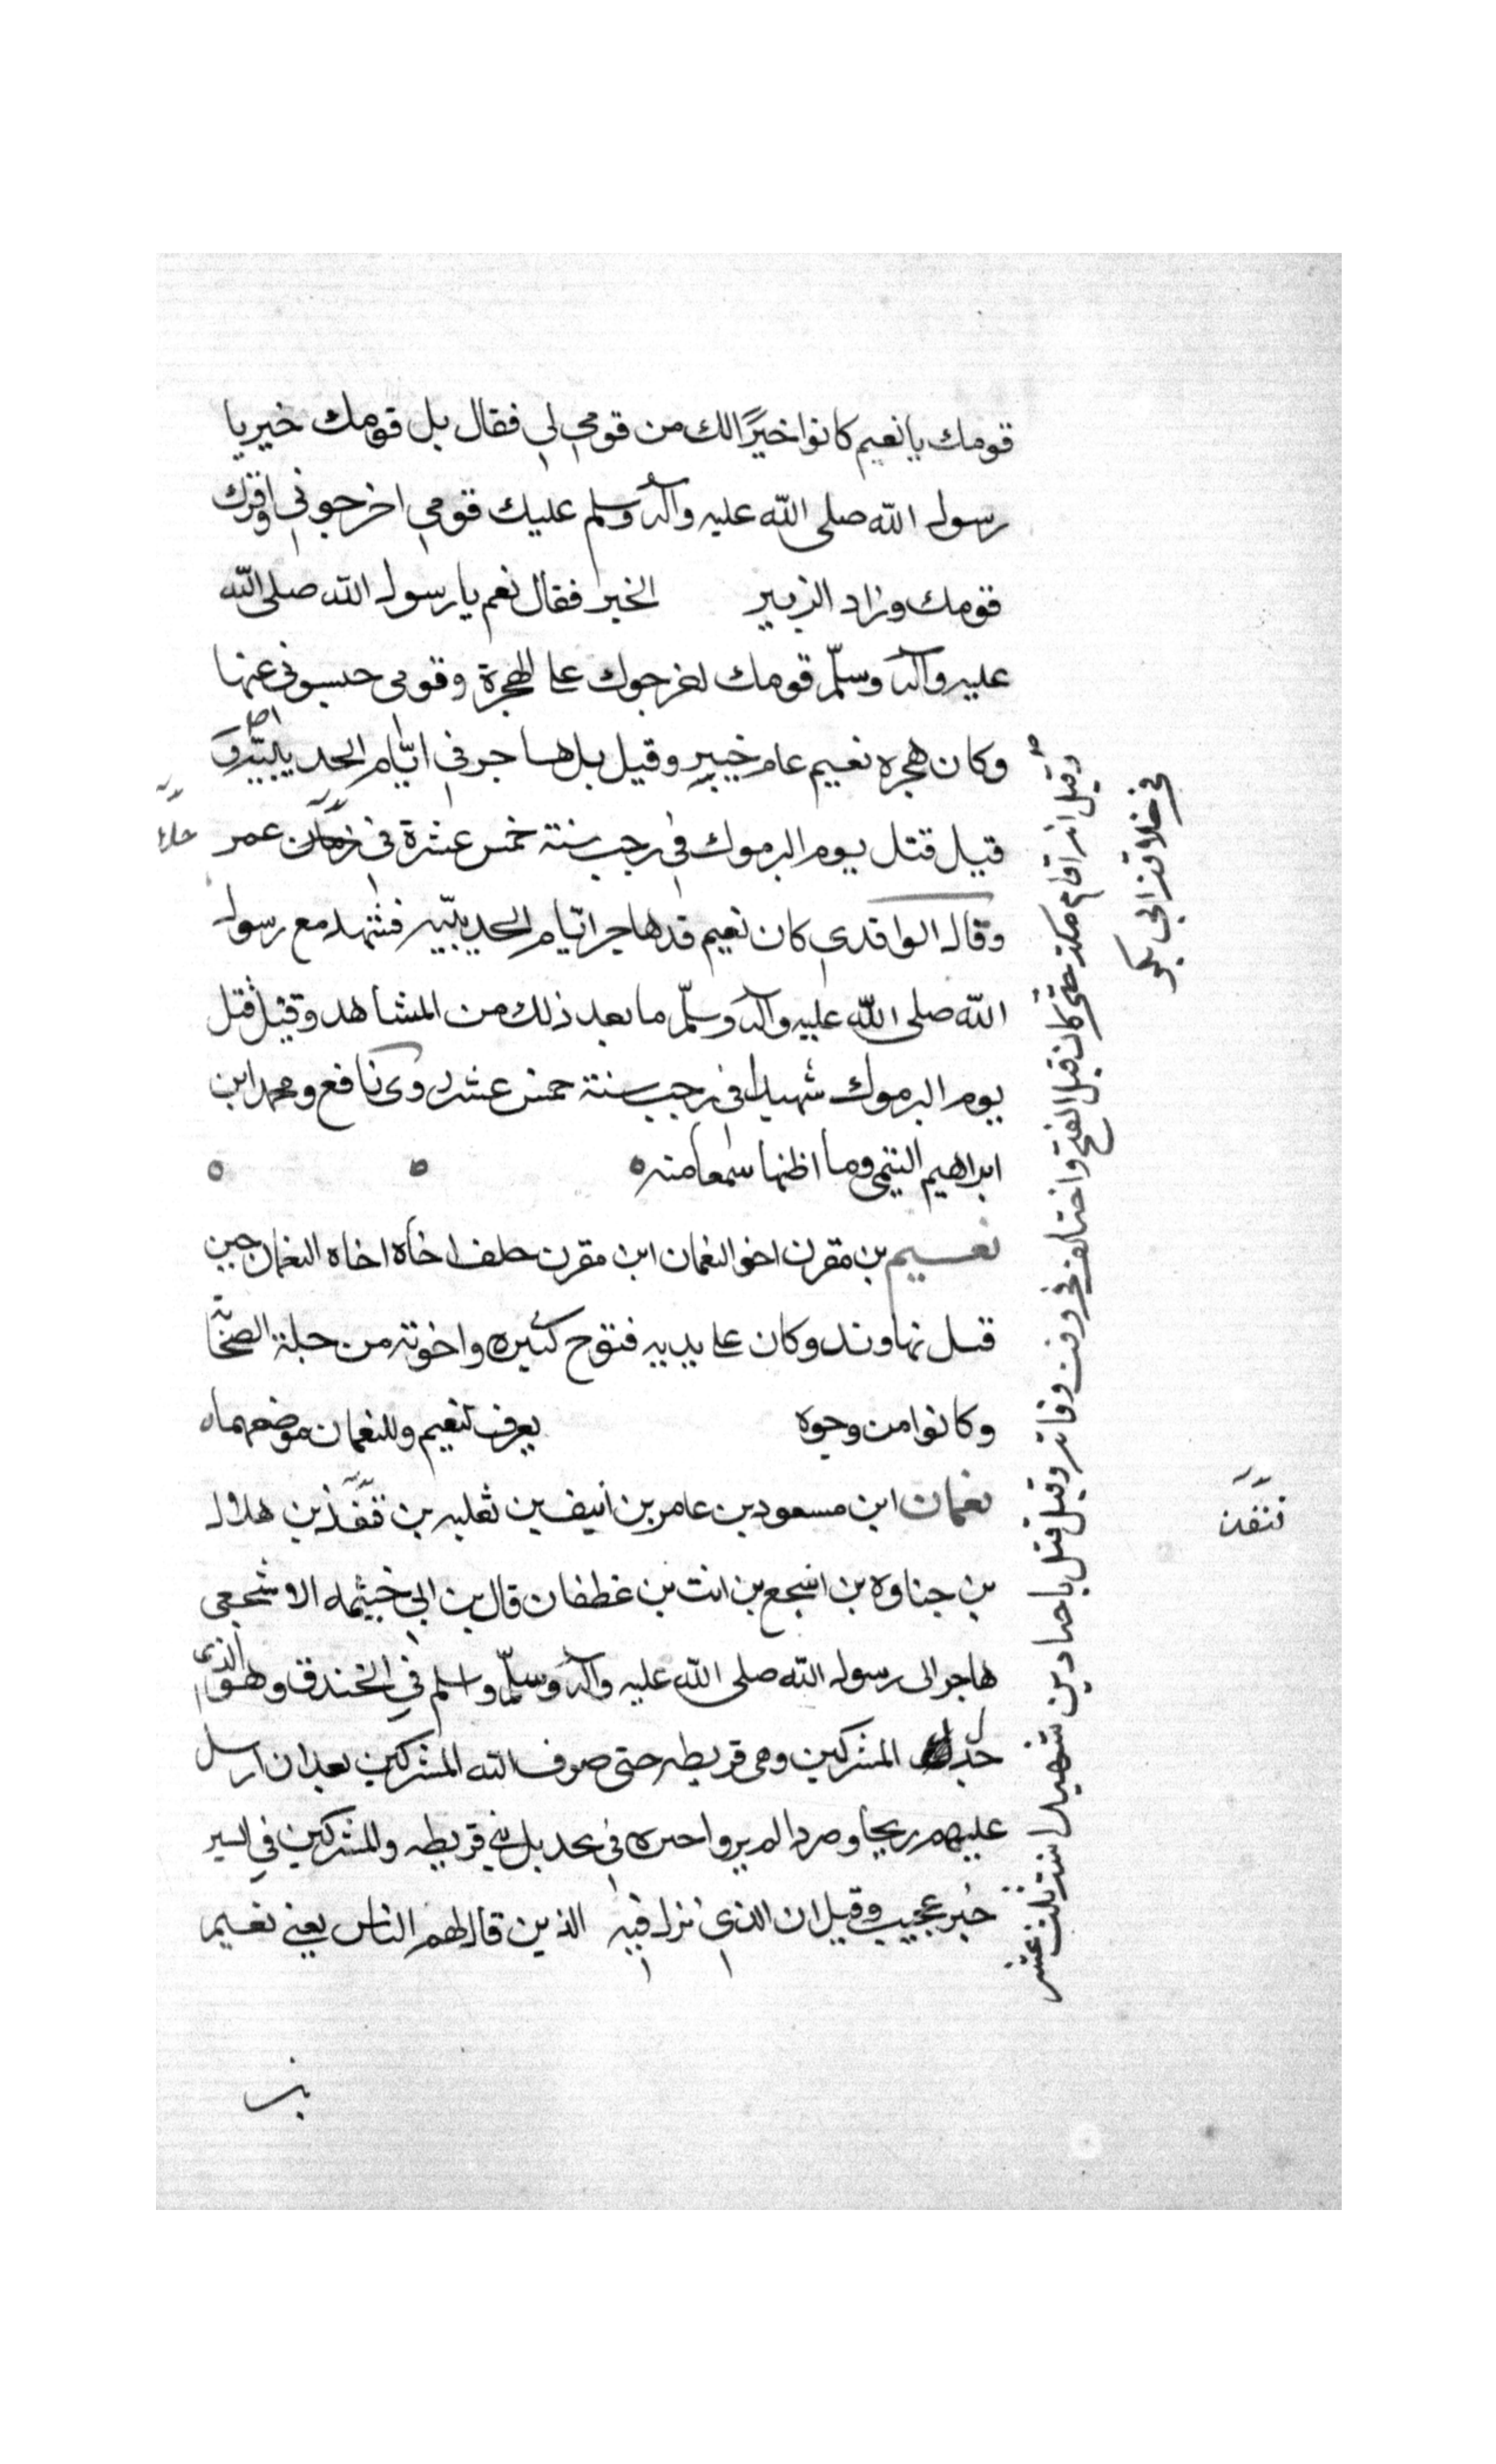 قومك يا نعيم كانوا خيرًا لك من قومي لي فقال بل قومك خير يا
رسول الله صلى الله عليه وآله وسلم عليك قومي اخرجوني واقرك
قومك وزاد الزبير الخبر فقال نعم يا رسول الله صلى الله
عليه وآله وسلّم قومك اخرجوك على الهجرة وقومى حبسوني عنها
وكان هجره نعيم عام خيبر وقيل بل هاجر في ايّام الحديبيّه و
قيل قتل يوم اليرموك في رجب سنة خمس عشرة في زمان عمر
وقال الواقدي كان نعيم قد هاجر ايّام الحديبيّه فشهد مع رسول
الله صلى الله عليه وآله وسلّم ما بعد ذلك من المشاهد وقيل قتل
يوم اليرموك شهيدا في رجب سنة خمس عشر روى نافع ومحمد ابن
ابراهيم التيمي وما اظنها سمعا منه
نعيم بن مقرن اخو النعمان ابن مقرن خلف اخاه اخاه النعمان حين
قتل نهاوند وكان على يديه فتوح كثيره واخوته من جلة الصحا
وكانوا من وجوه يعرف لنعيم وللنعمان موضعهما
نعمان ابن مسعود بن عامر بن انيف بن ثعلبه بن قنفذ بن هلال
بن حناوه بن اشجع بن انت بن غطفان قال بن ابي خيثمه الاشجعي
هاجر الى رسول الله صلى الله عليه وآله وسلّم واسلم في الخندق وهو الذي
خذل المشركين وهى قريطه حتى صرف الله المشركين بعد ان ارسل
عليهم ريحا و لم يروا في بنى قريطه والمشركين في السير
خبر عجيب وقيل ان الذي نزل فيه الذين قال لهم الناس يعني نعيم
بن
وقيل انه اقام مكة حتى كان قبل الفتح واختلف في وقت وفاته وقيل قتل باجنادين شهيدا سنة ثلث عشر
في خلافة ابي بكر